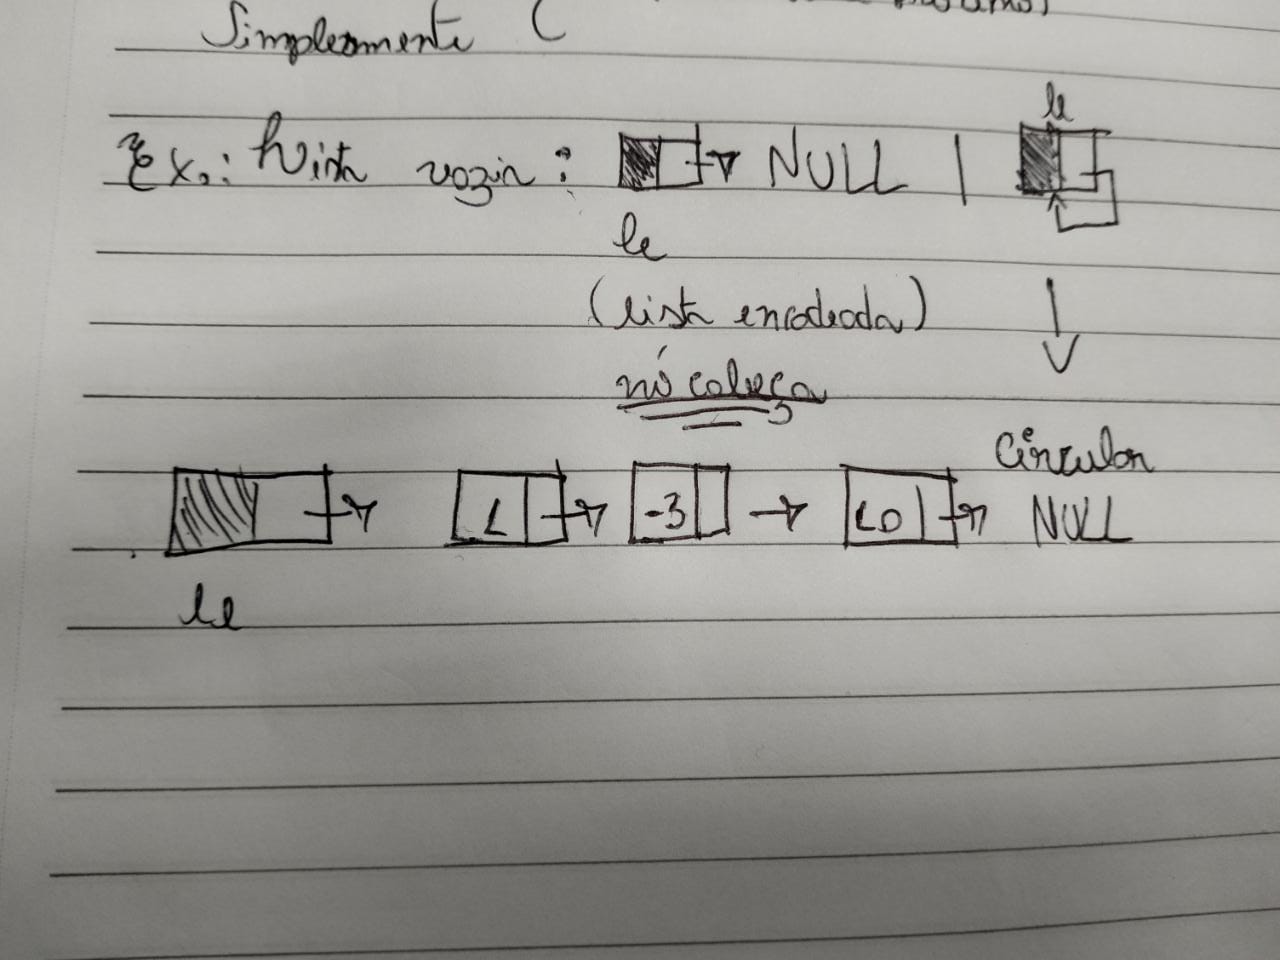 Simplesmente (
Ex.: Lista vazia: → NULL | le
le
(lista encadeada) ↓
nó cabeça
Circular
→ 1 → -3 → 10 → NULL
le